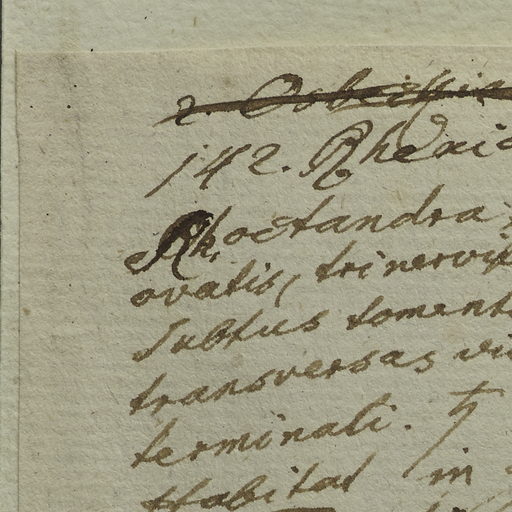 2. Osbeckia
142. Rhexia
Rh. octandra,
ovatis, trinerviis
subtus toment
transversas
terminali. ♄
Habitat in